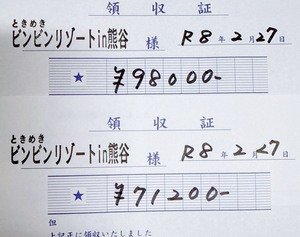 領収証
ときめき
ビンビンリゾートin熊谷 様 R8年2月27日
★ ¥98000-
領収証
ときめき
ビンビンリゾートin熊谷 様 R8年2月27日
★ ¥71200-
但
上記正に領収いたしました